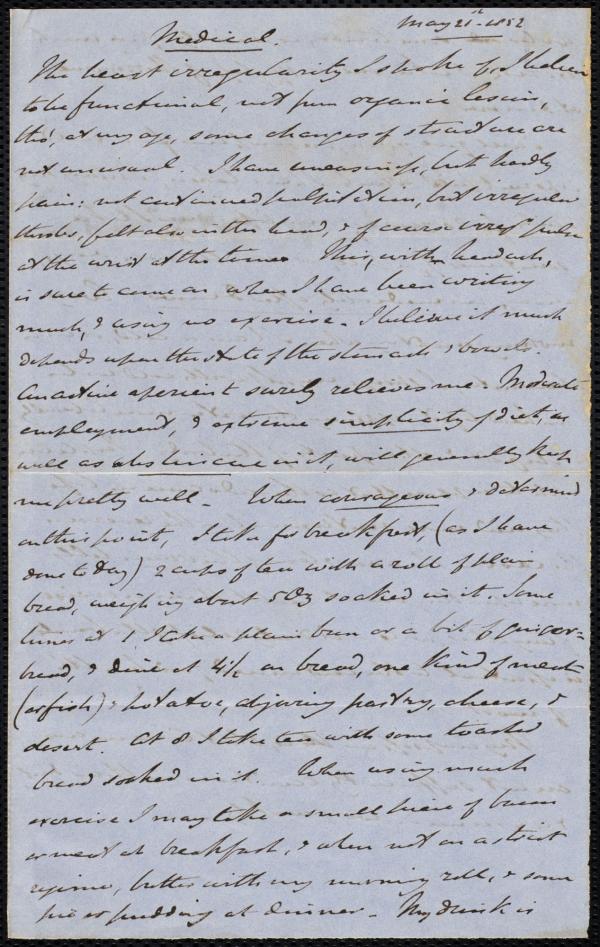 May 21st - 1852
Medical.
The heart irregularity I spoke of, I believe
to be functional, not from organic lesion,
tho', at my age, some changes of structure are
not unusual. I have uneasiness, but hardly
pain: not continued palpitation, but irregular
throbs, felt also in the head, & of course irregr pulse
at the wrist at the time. This, with headach,
is sure to come on when I have been writing
much, & using no exercise. I believe it much
depends upon the state of the stomach & bowels.
An active aperient surely relieves me. Moderate
employment, & extreme simplicity of diet, as
well as abstinence in it, will generally keep
me pretty well. When courageous & determined
on this point, I take for breakfast, (as I have
done to day) 2 cups of tea with a roll of plain
bread, weighing about 5 oz soaked in it. Some
times at 1 I take a plain bun or a bit of ginger=
bread, & dine at 4½ on bread, one kind of meat
(or fish) & potatoe, abjuring pastry, cheese, &
desert. At 8 I take tea with some toasted
bread soaked in it. When using much
exercise I may take a small piece of bacon
or meat at breakfast, & when not on a strict
regime, butter with my morning roll, & some
pie or pudding at dinner. My drink is